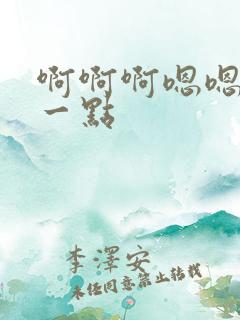 啊啊啊嗯嗯
一點
李澤安
未經同意禁止轉載